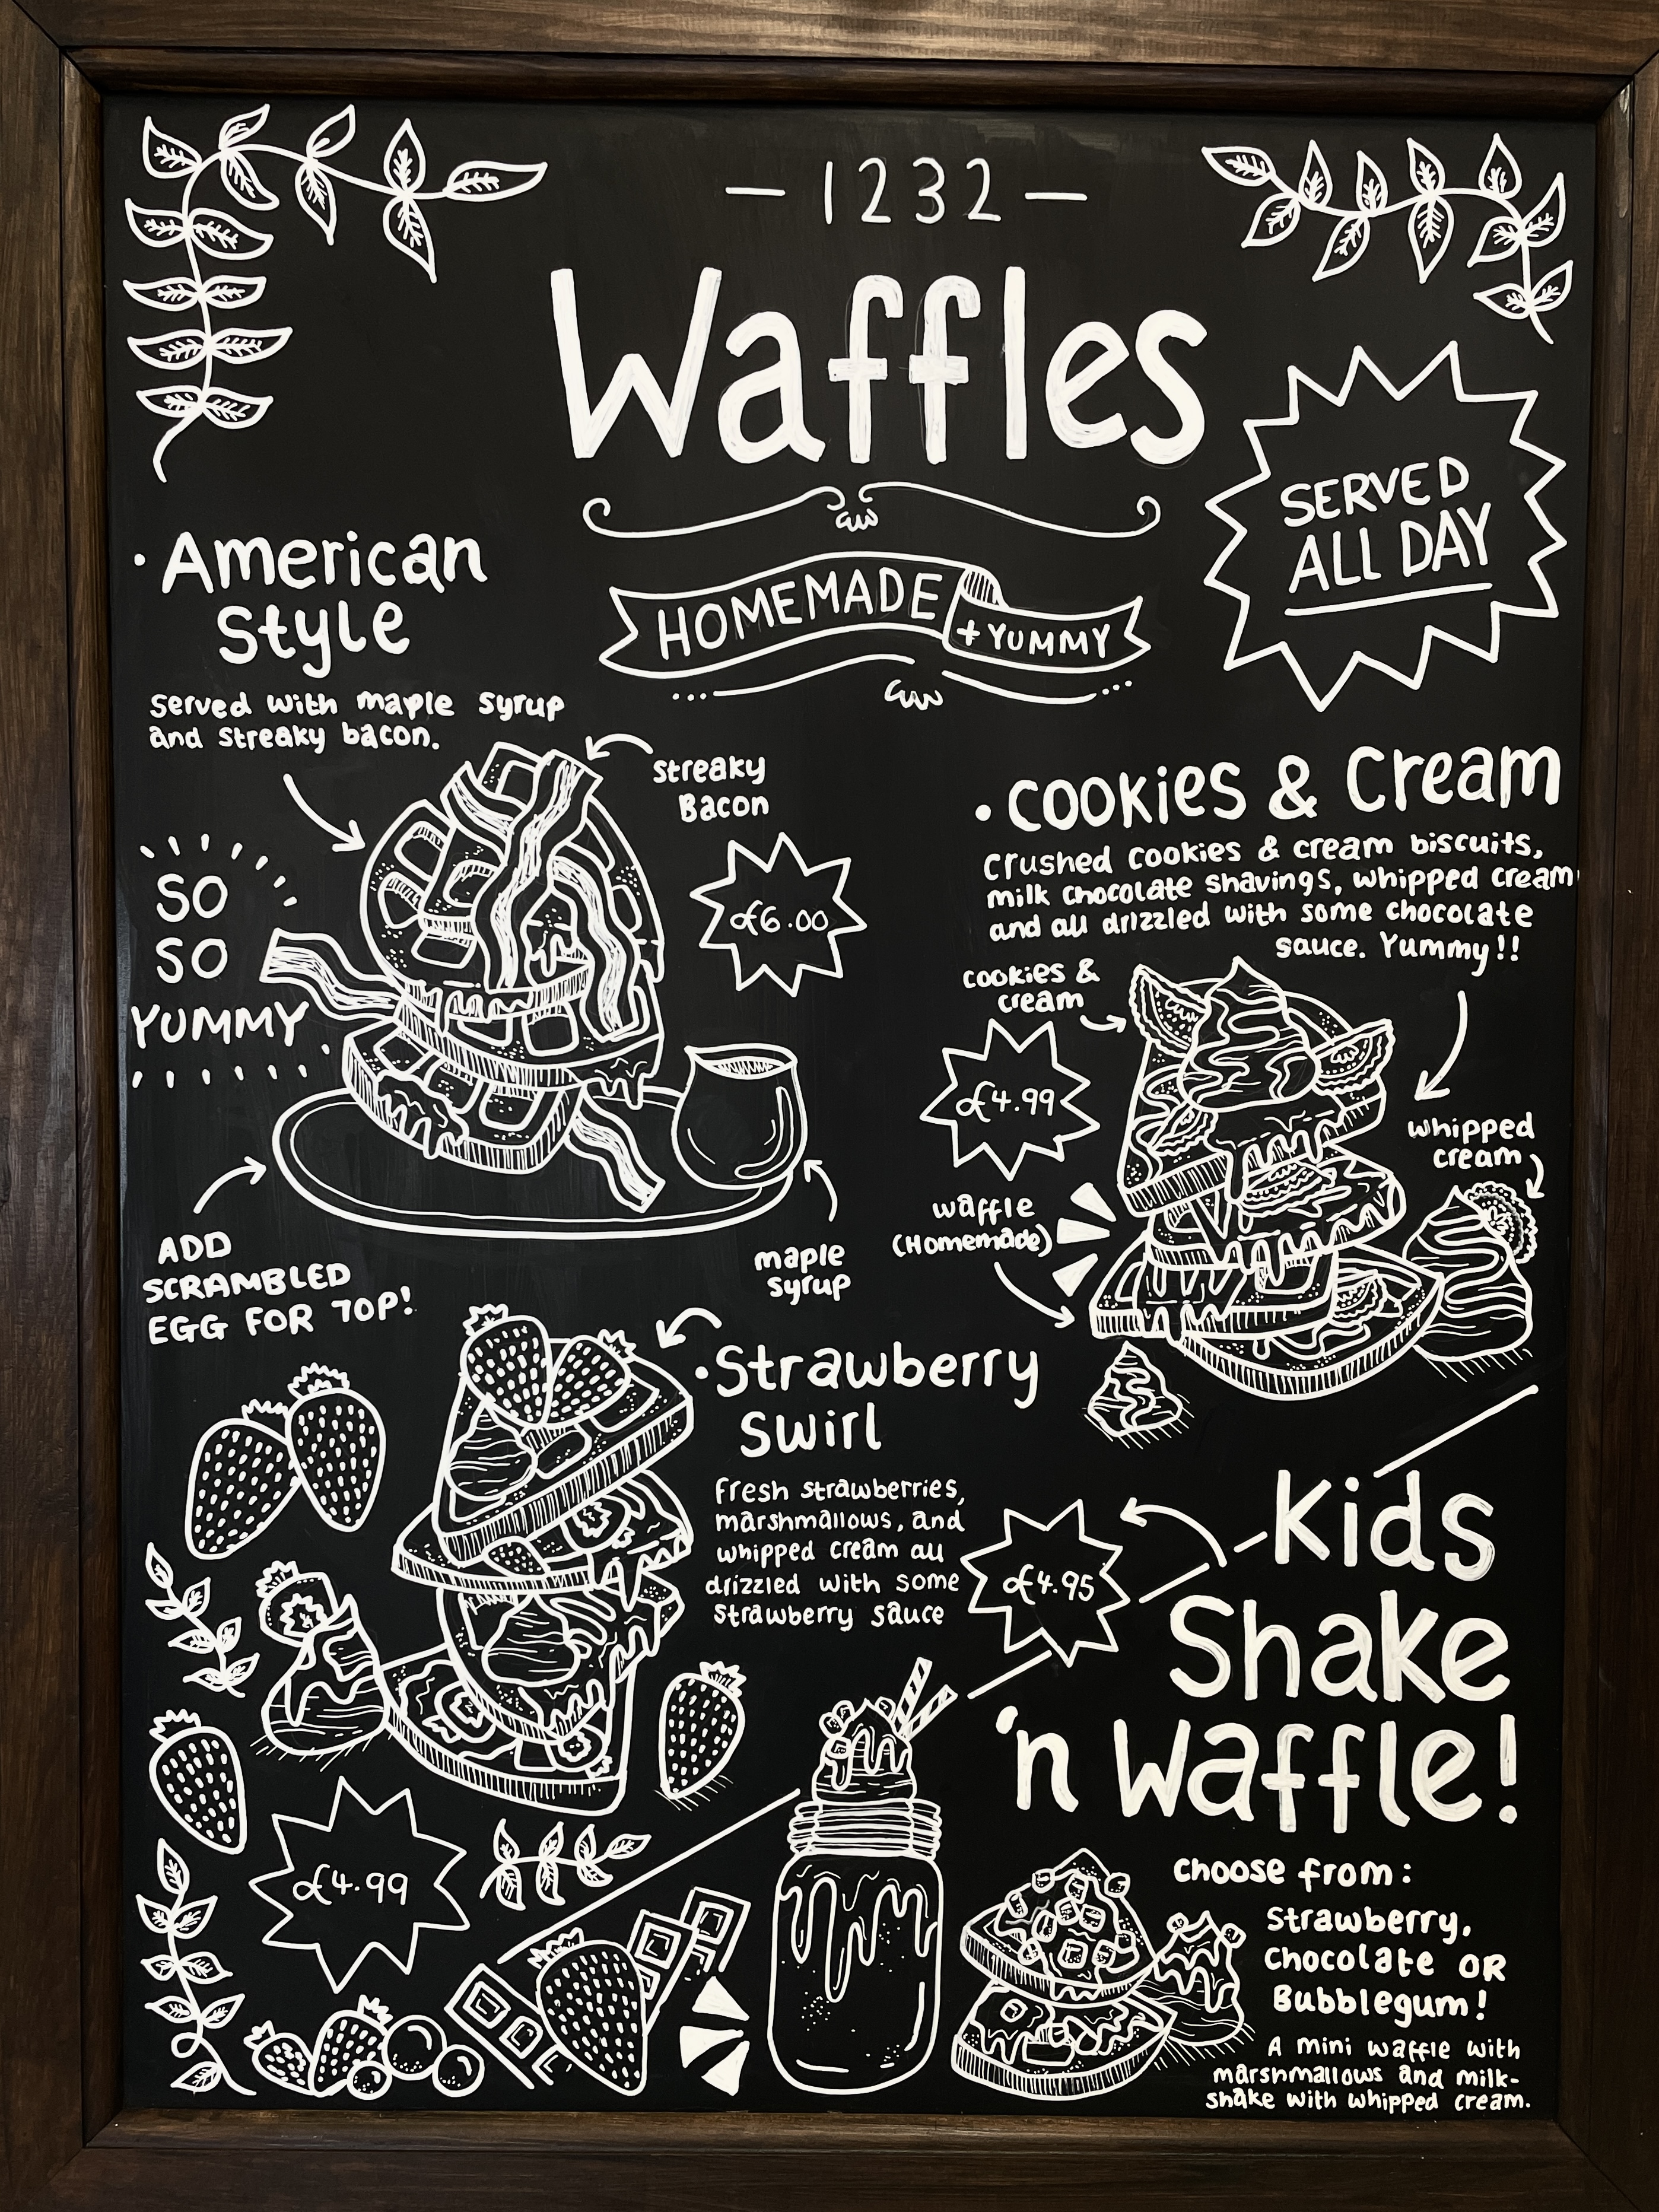 - 1232 -
Waffles
HOMEMADE
+ YUMMY
SERVED
ALL DAY
· American
Style
Served with maple syrup
and streaky bacon.
streaky
Bacon
£6.00
SO
SO
YUMMY
ADD
SCRAMBLED
EGG FOR 70P!
maple
syrup
· Cookies & Cream
Crushed cookies & cream biscuits,
milk chocolate shavings, whipped cream
and all drizzled with some chocolate
sauce. Yummy!!
cookies &
cream
£4.99
whipped
cream
waffle
(Homemade)
· Strawberry
Swirl
Fresh strawberries,
marshmallows, and
whipped cream all
drizzled with some
strawberry sauce
£4.99
£4.95
Kids
Shake
'n Waffle!
choose from:
Strawberry,
Chocolate OR
Bubblegum!
A mini waffle with
marshmallows and milk-
shake with whipped cream.